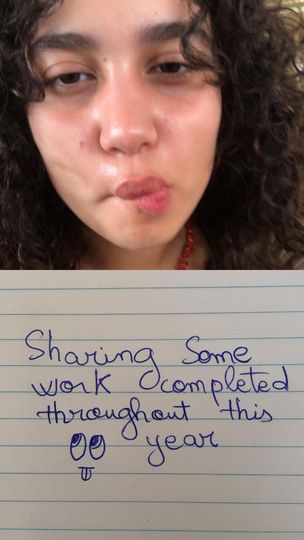 Sharing Some
work completed
throughout this
year